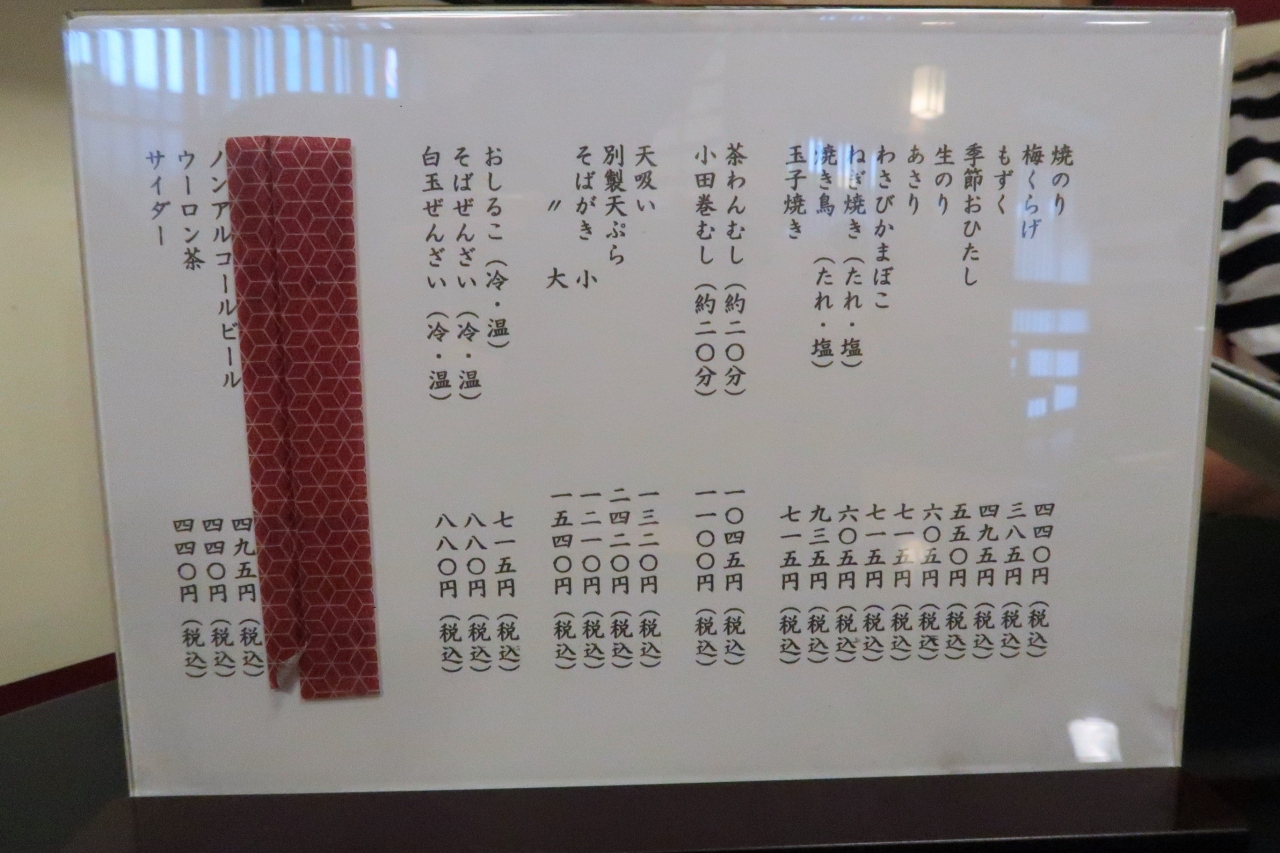 焼のり 四四〇円(税込)
梅くらげ 三八五円(税込)
もずく 四九五円(税込)
季節おひたし 五五〇円(税込)
生のり 六〇五円(税込)
あさり 七一五円(税込)
わさびかまぼこ 七一五円(税込)
ねぎ焼き(たれ・塩) 六〇五円(税込)
焼き鳥(たれ・塩) 九三五円(税込)
玉子焼き 七一五円(税込)
茶わんむし(約二〇分) 一〇四五円(税込)
小田巻むし(約二〇分) 一一〇〇円(税込)
天吸い 一三二〇円(税込)
別製天ぷら 二四二〇円(税込)
そばがき 小 一二一〇円(税込)
〃 大 一五四〇円(税込)
おしるこ(冷・温) 七一五円(税込)
そばぜんざい(冷・温) 八八〇円(税込)
白玉ぜんざい(冷・温) 八八〇円(税込)
ノンアルコールビール 四九五円(税込)
ウーロン茶 四四〇円(税込)
サイダー 四四〇円(税込)